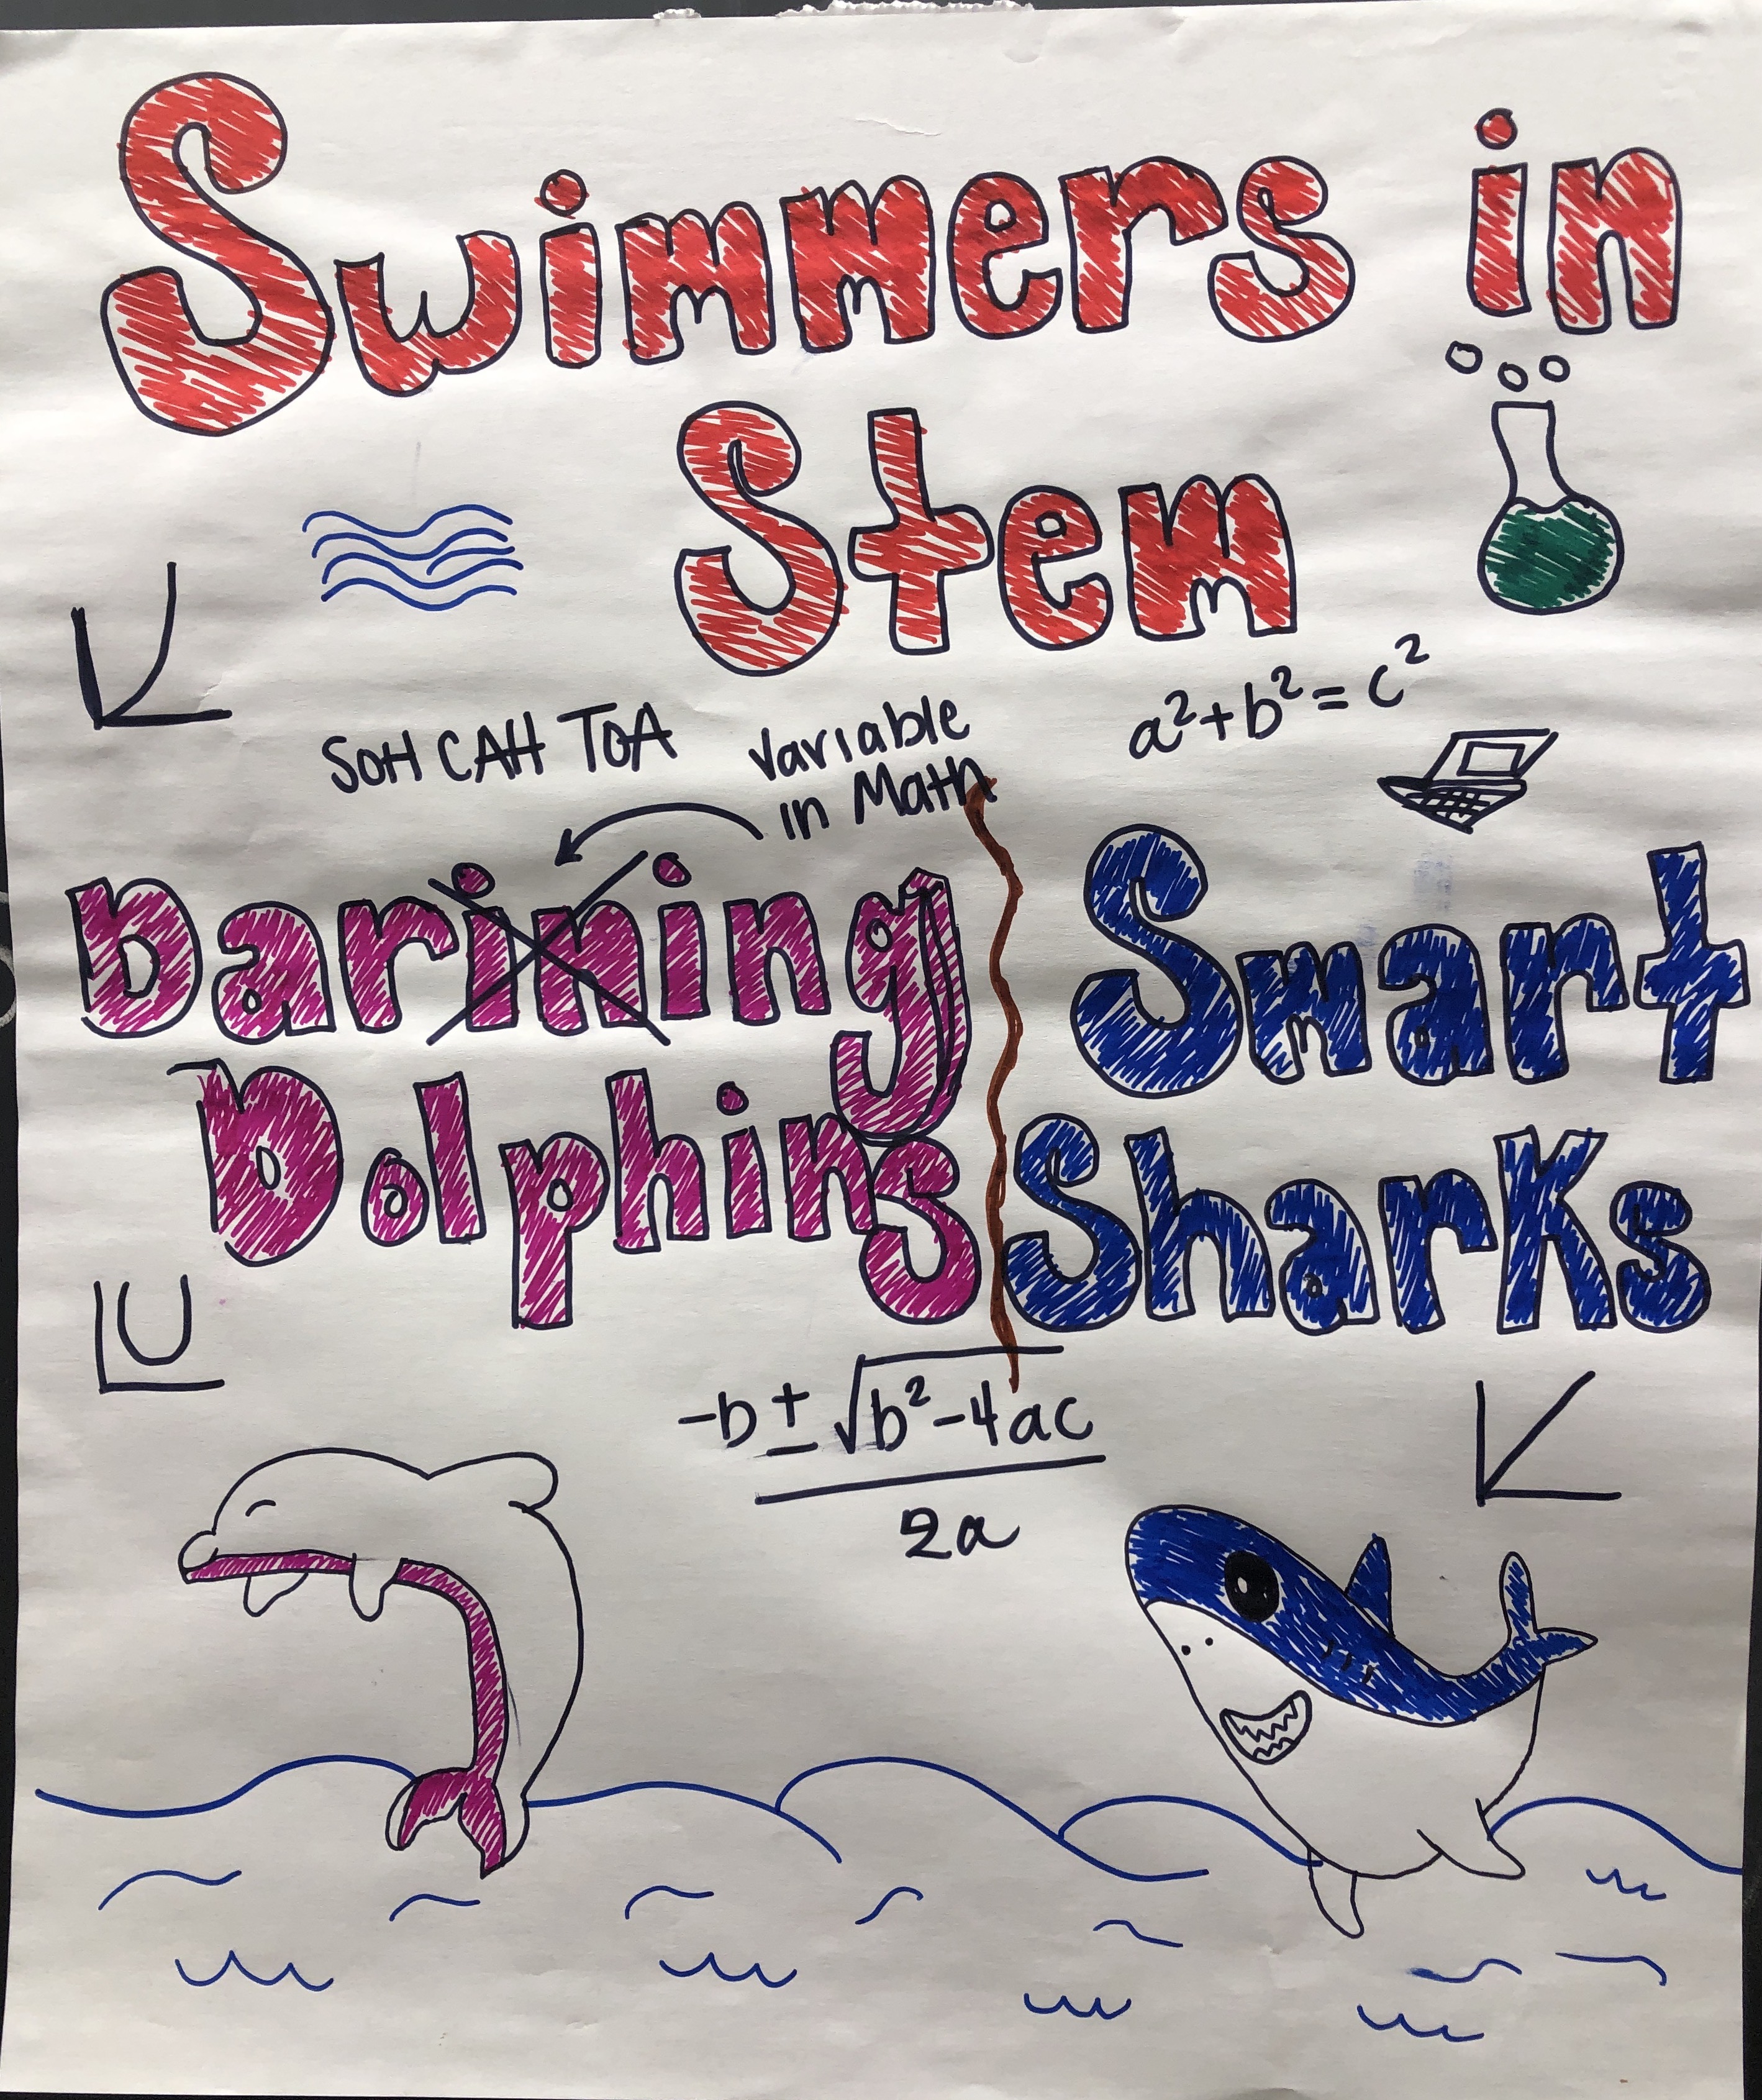 Swimmers in
Stem
SOH CAH TOA
variable
in Math
a²+b²=c²
Darining
Dolphins
Smart
Sharks
-b ± √b²-4ac
2a